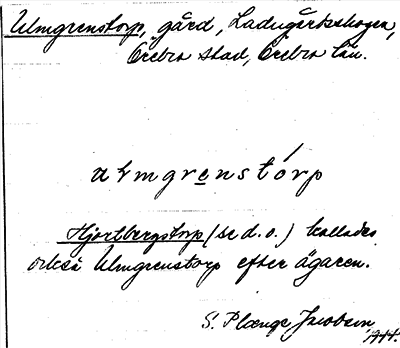 Ulmgrenstorp, gård, Ladugårdsskogen,
Örebro stad, Örebro län.
ulmgrenstórp
Hjortbergstorp (se d. o.) kallades
också Ulmgrenstorp efter ägaren.
S. Plænge Jacobson